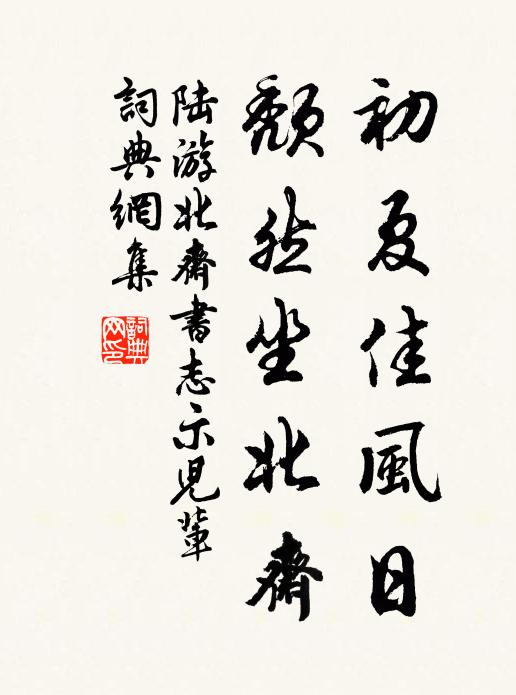 初夏佳風日
頹然坐北齋
陸游北齋書志示兒輩
詞典網集
詞典
网印